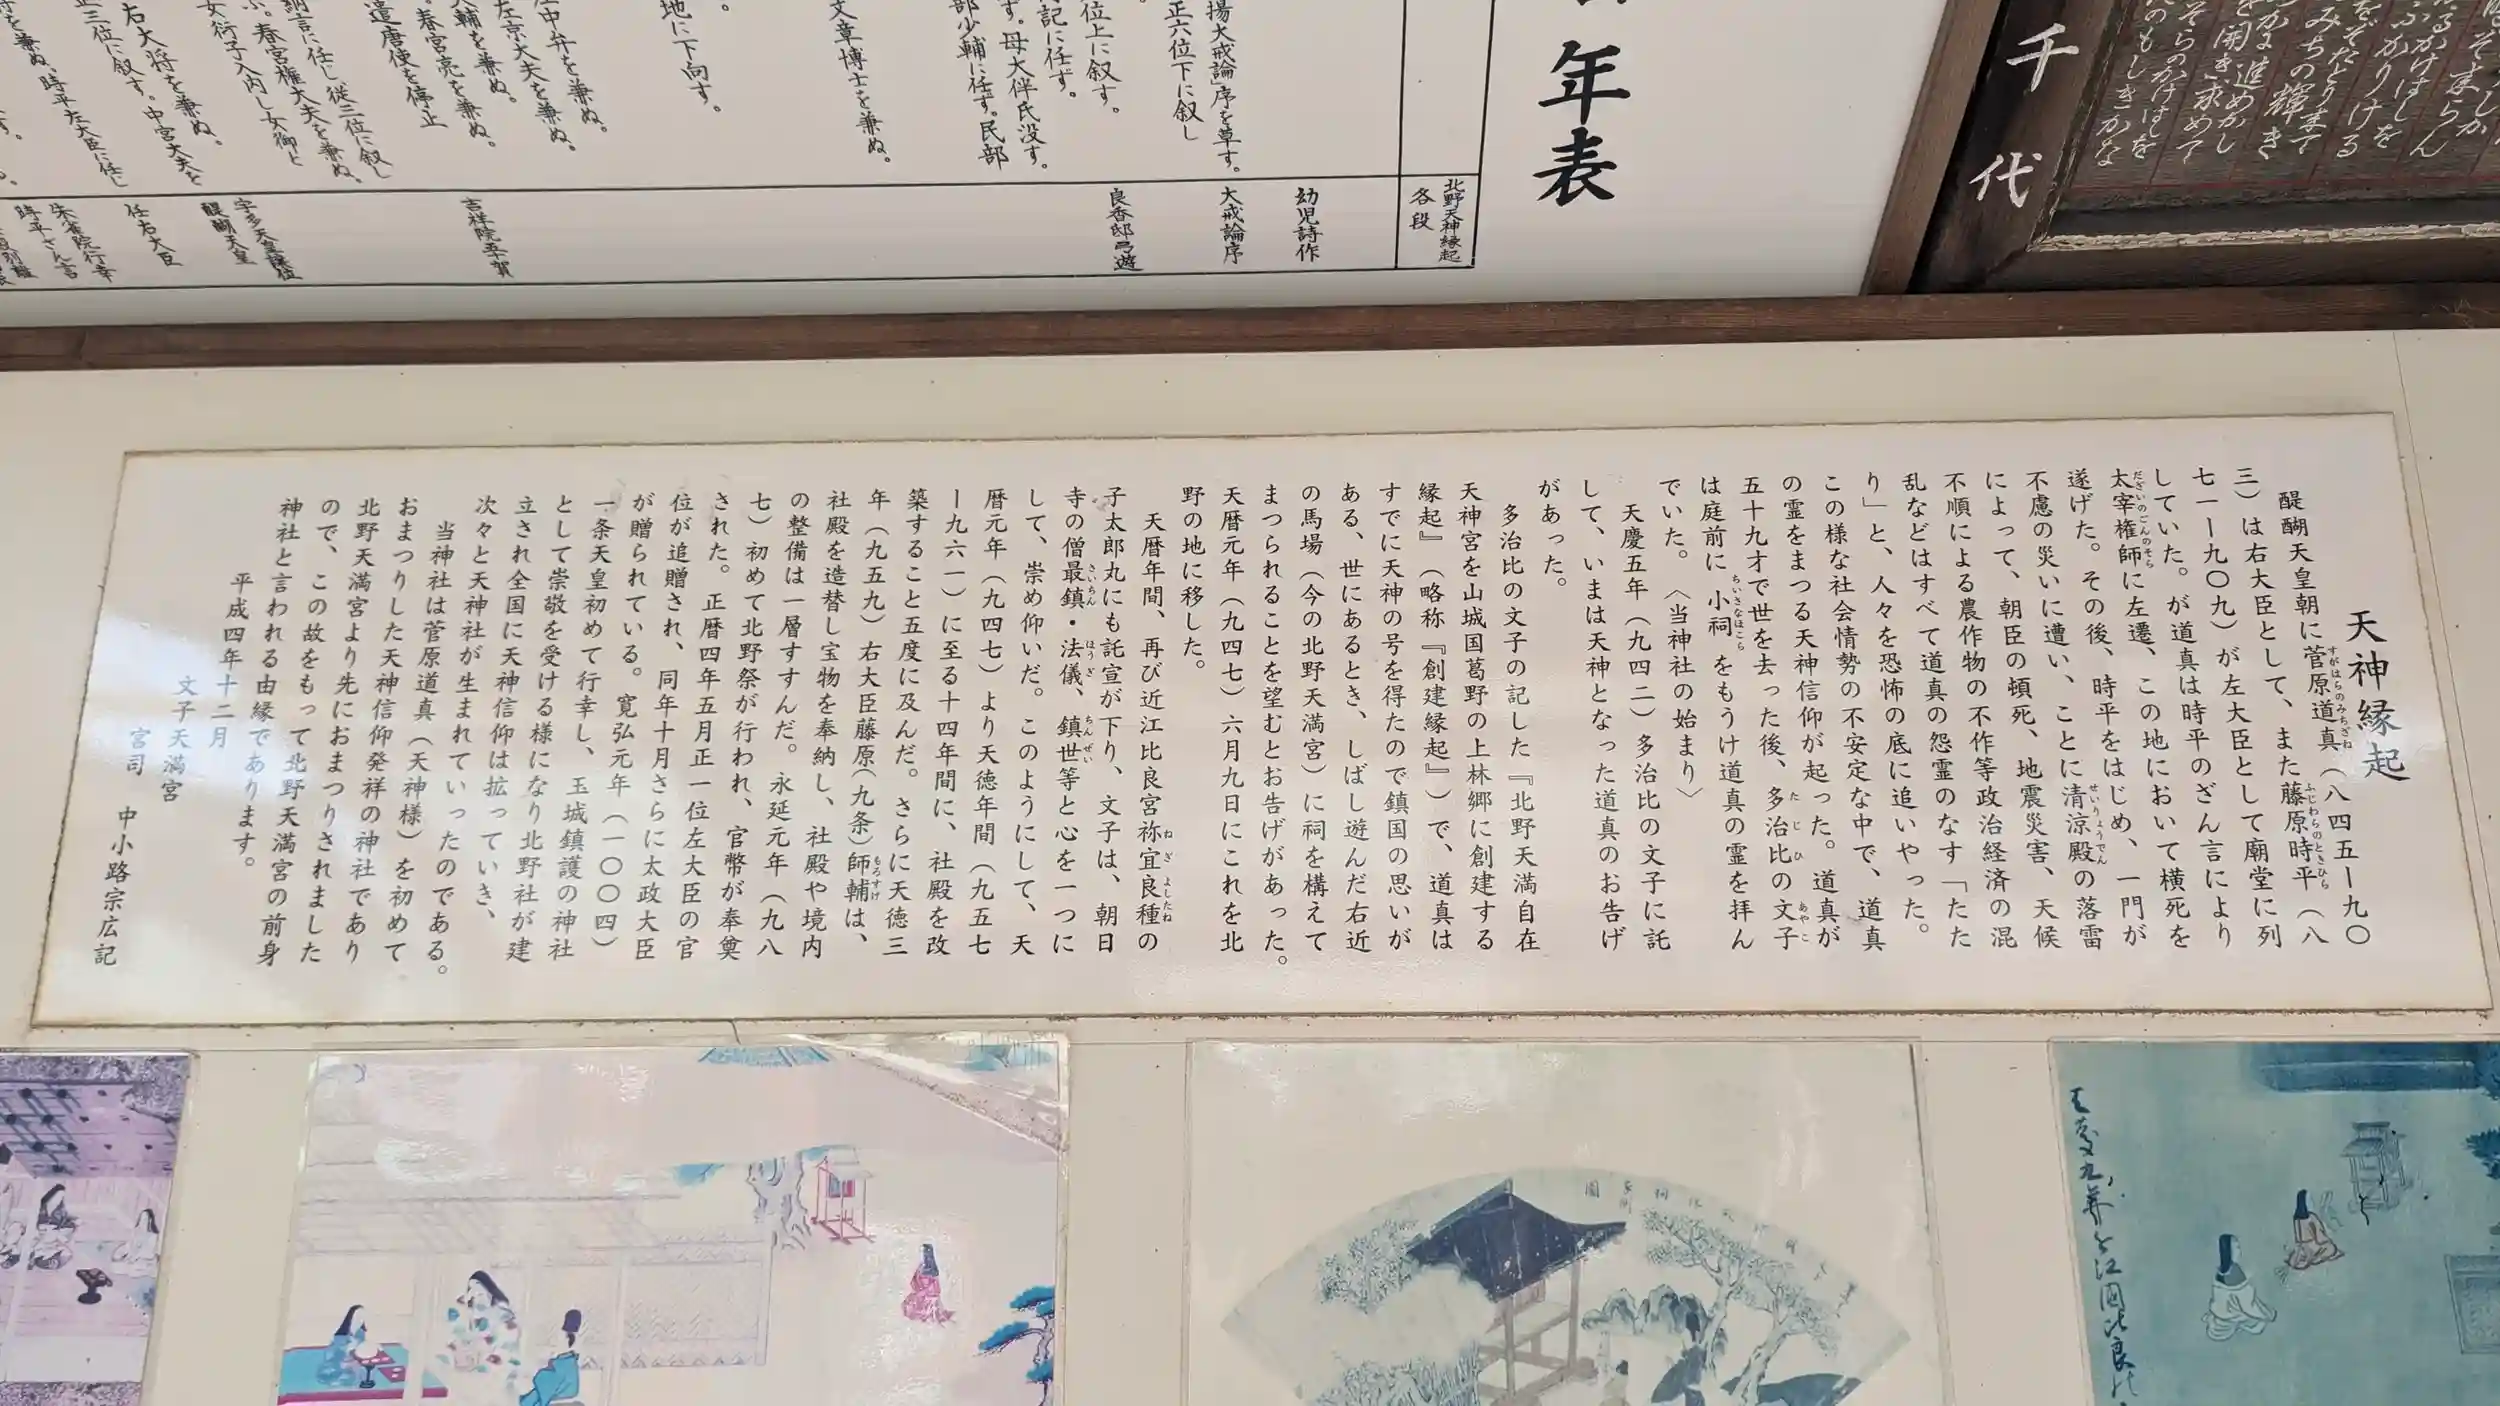 千代
年表
北野天神縁起
各段
幼児詩作
大戒論序
良香邸弓遊
吉祥院五十賀
醍醐天皇
任右大臣
朱雀院行幸
時平ざん言
揚大戒論」序を草す。
正六位下に叙し
位上に叙す。
記に任ず。
す。母大伴氏没す。
部少輔に任ず。民部
文章博士を兼ぬ。
地に下向す。
中弁を兼ぬ。
左京大夫を兼ぬ。
大輔を兼ぬ。
春宮亮を兼ぬ。
遣唐使を停止
納言に任じ、従三位に叙し
春宮権大夫を兼ぬ。
女衍子入内し女御と
右大将を兼ぬ。
正三位に叙す。中宮大夫を
を兼ぬ、時平左大臣に任じ
天神縁起
醍醐天皇朝に菅原道真（八四五ー九〇
三）は右大臣として、また藤原時平（八
七一ー九〇九）が左大臣として廟堂に列
していた。が道真は時平のざん言により
太宰権師に左遷、この地において横死を
遂げた。その後、時平をはじめ、一門が
不慮の災いに遭い、ことに清涼殿の落雷
によって、朝臣の頓死、地震災害、天候
不順による農作物の不作等政治経済の混
乱などはすべて道真の怨霊のなす「たた
り」と、人々を恐怖の底に追いやった。
この様な社会情勢の不安定な中で、道真
の霊をまつる天神信仰が起った。道真が
五十九才で世を去った後、多治比の文子
は庭前に小祠をもうけ道真の霊を拝ん
でいた。〈当神社の始まり〉
天慶五年（九四二）多治比の文子に託
して、いまは天神となった道真のお告げ
があった。
多治比の文子の記した『北野天満自在
天神宮を山城国葛野の上林郷に創建する
縁起』（略称『創建縁起』）で、道真は
すでに天神の号を得たので鎮国の思いが
ある、世にあるとき、しばし遊んだ右近
の馬場（今の北野天満宮）に祠を構えて
まつられることを望むとお告げがあった。
天暦元年（九四七）六月九日にこれを北
野の地に移した。
天暦年間、再び近江比良宮祢宜良種の
子太郎丸にも託宣が下り、文子は、朝日
寺の僧最鎮・法儀、鎮世等と心を一つに
して、崇め仰いだ。このようにして、天
暦元年（九四七）より天徳年間（九五七
ー九六一）に至る十四年間に、社殿を改
築すること五度に及んだ。さらに天徳三
年（九五九）右大臣藤原（九条）師輔は、
社殿を造替し宝物を奉納し、社殿や境内
の整備は一層すすんだ。永延元年（九八
七）初めて北野祭が行われ、官幣が奉奠
された。正暦四年五月正一位左大臣の官
位が追贈され、同年十月さらに太政大臣
が贈られている。寛弘元年（一〇〇四）
一条天皇初めて行幸し、玉城鎮護の神社
として崇敬を受ける様になり北野社が建
立され全国に天神信仰は拡っていき、
次々と天神社が生まれていったのである。
当神社は菅原道真（天神様）を初めて
おまつりした天神信仰発祥の神社であり
北野天満宮より先におまつりされました
ので、この故をもって北野天満宮の前身
神社と言われる由縁であります。
平成四年十二月
文子天満宮
宮司　中小路宗広記